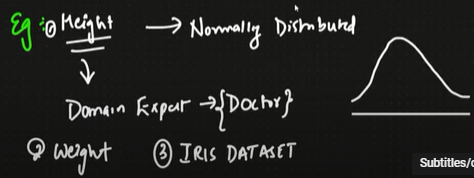 Eg :① Height → Normally Distributed
↓
Domain Expert → {Doctor}
② Weight ③ IRIS DATASET
Subtitles/c